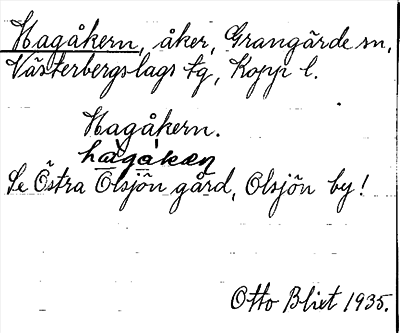 Hagåkern, åker, Grangärde sn,
Västerbergslags tg, Kopp l.
Hagåkern.
Se Östra Olsjön gård, Olsjön by!
Otto Blixt 1935.